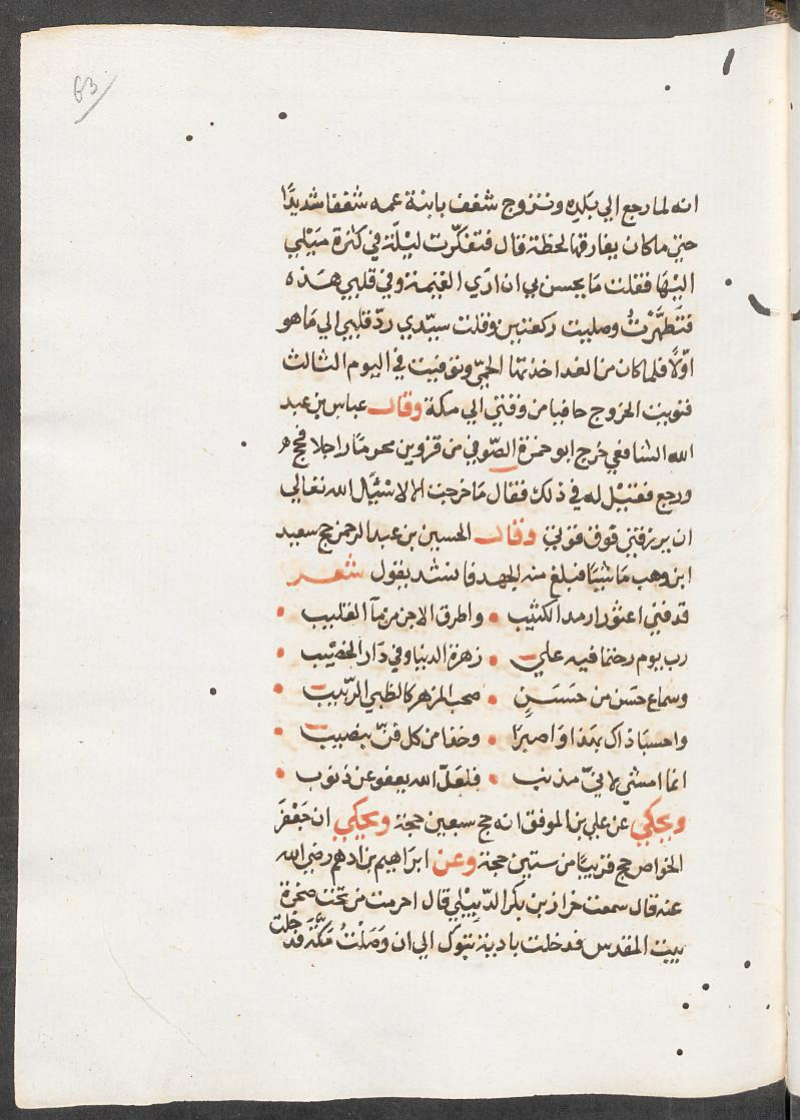 63
انه لما رجع الي بلده وتزوج شغف بابنة عمه شغفا شديدًا
حتي ما كان يفارقها لحظة قال فتفكّرت ليْلَة في كثرة مَيْلي
اليْهَا فقلت مَا يحسن بي ان ادّي القيمة وفي قلبي هَذه
فتَطَهَّرْتُ وصليت ركعتين وقلت سيّدي ردّ قلبي الي مَا هو
اوّلًا فلما كان من الغد اخذتها الحمّي وتوفيت في اليوم الثالث
فنويت الخروج حافيا من وقتي الي مكة وقال عباس بن عبد
الله الشافعي خرج ابو حمزة الصّوفي من قزوين محرمًا راجلا فحج
ورجع فقيْل له في ذلك فقال مَا خرجت الا لاسْئَل الله تعالي
ان يرزقني قوف قوتي وقال الحسين بن عبد الرحمن حج سعيد
ابن وهب مَاشيًا فبلغ منه الجهد فانشد يقول شعر
قدمَي اعتورا رمد الكثيب • واطرقا الاجن من مآ القليب •
رب يوم رحتما فيه علي • زهرة الدنيا وفي دَار الخصيْب •
وسماع حسَن من حسَن • صحب المزهر كالظبي الربيب •
واحسبا ذاك بهذا وَاصبرَا • وخذا من كل فنّ بنصيب •
انما امشي لانيّ مذنب • فلعَلّ الله يعفو عن ذنوب •
ويحكي عن علي بن الموفق انه حج سبعين حجة ويحكي ان جَعْفر
الخواص حج قريبًا من ستين حجة وعن ابرَاهيم بن ادهم رضي الله
عنه قال سمعت خراز بن بكر الدّبيْلي قال احرمت من تحت صخرة
بيت المقدس فدخلت بادية تتوك الي ان وَصَلْتُ مَكَّةَ فدخلت